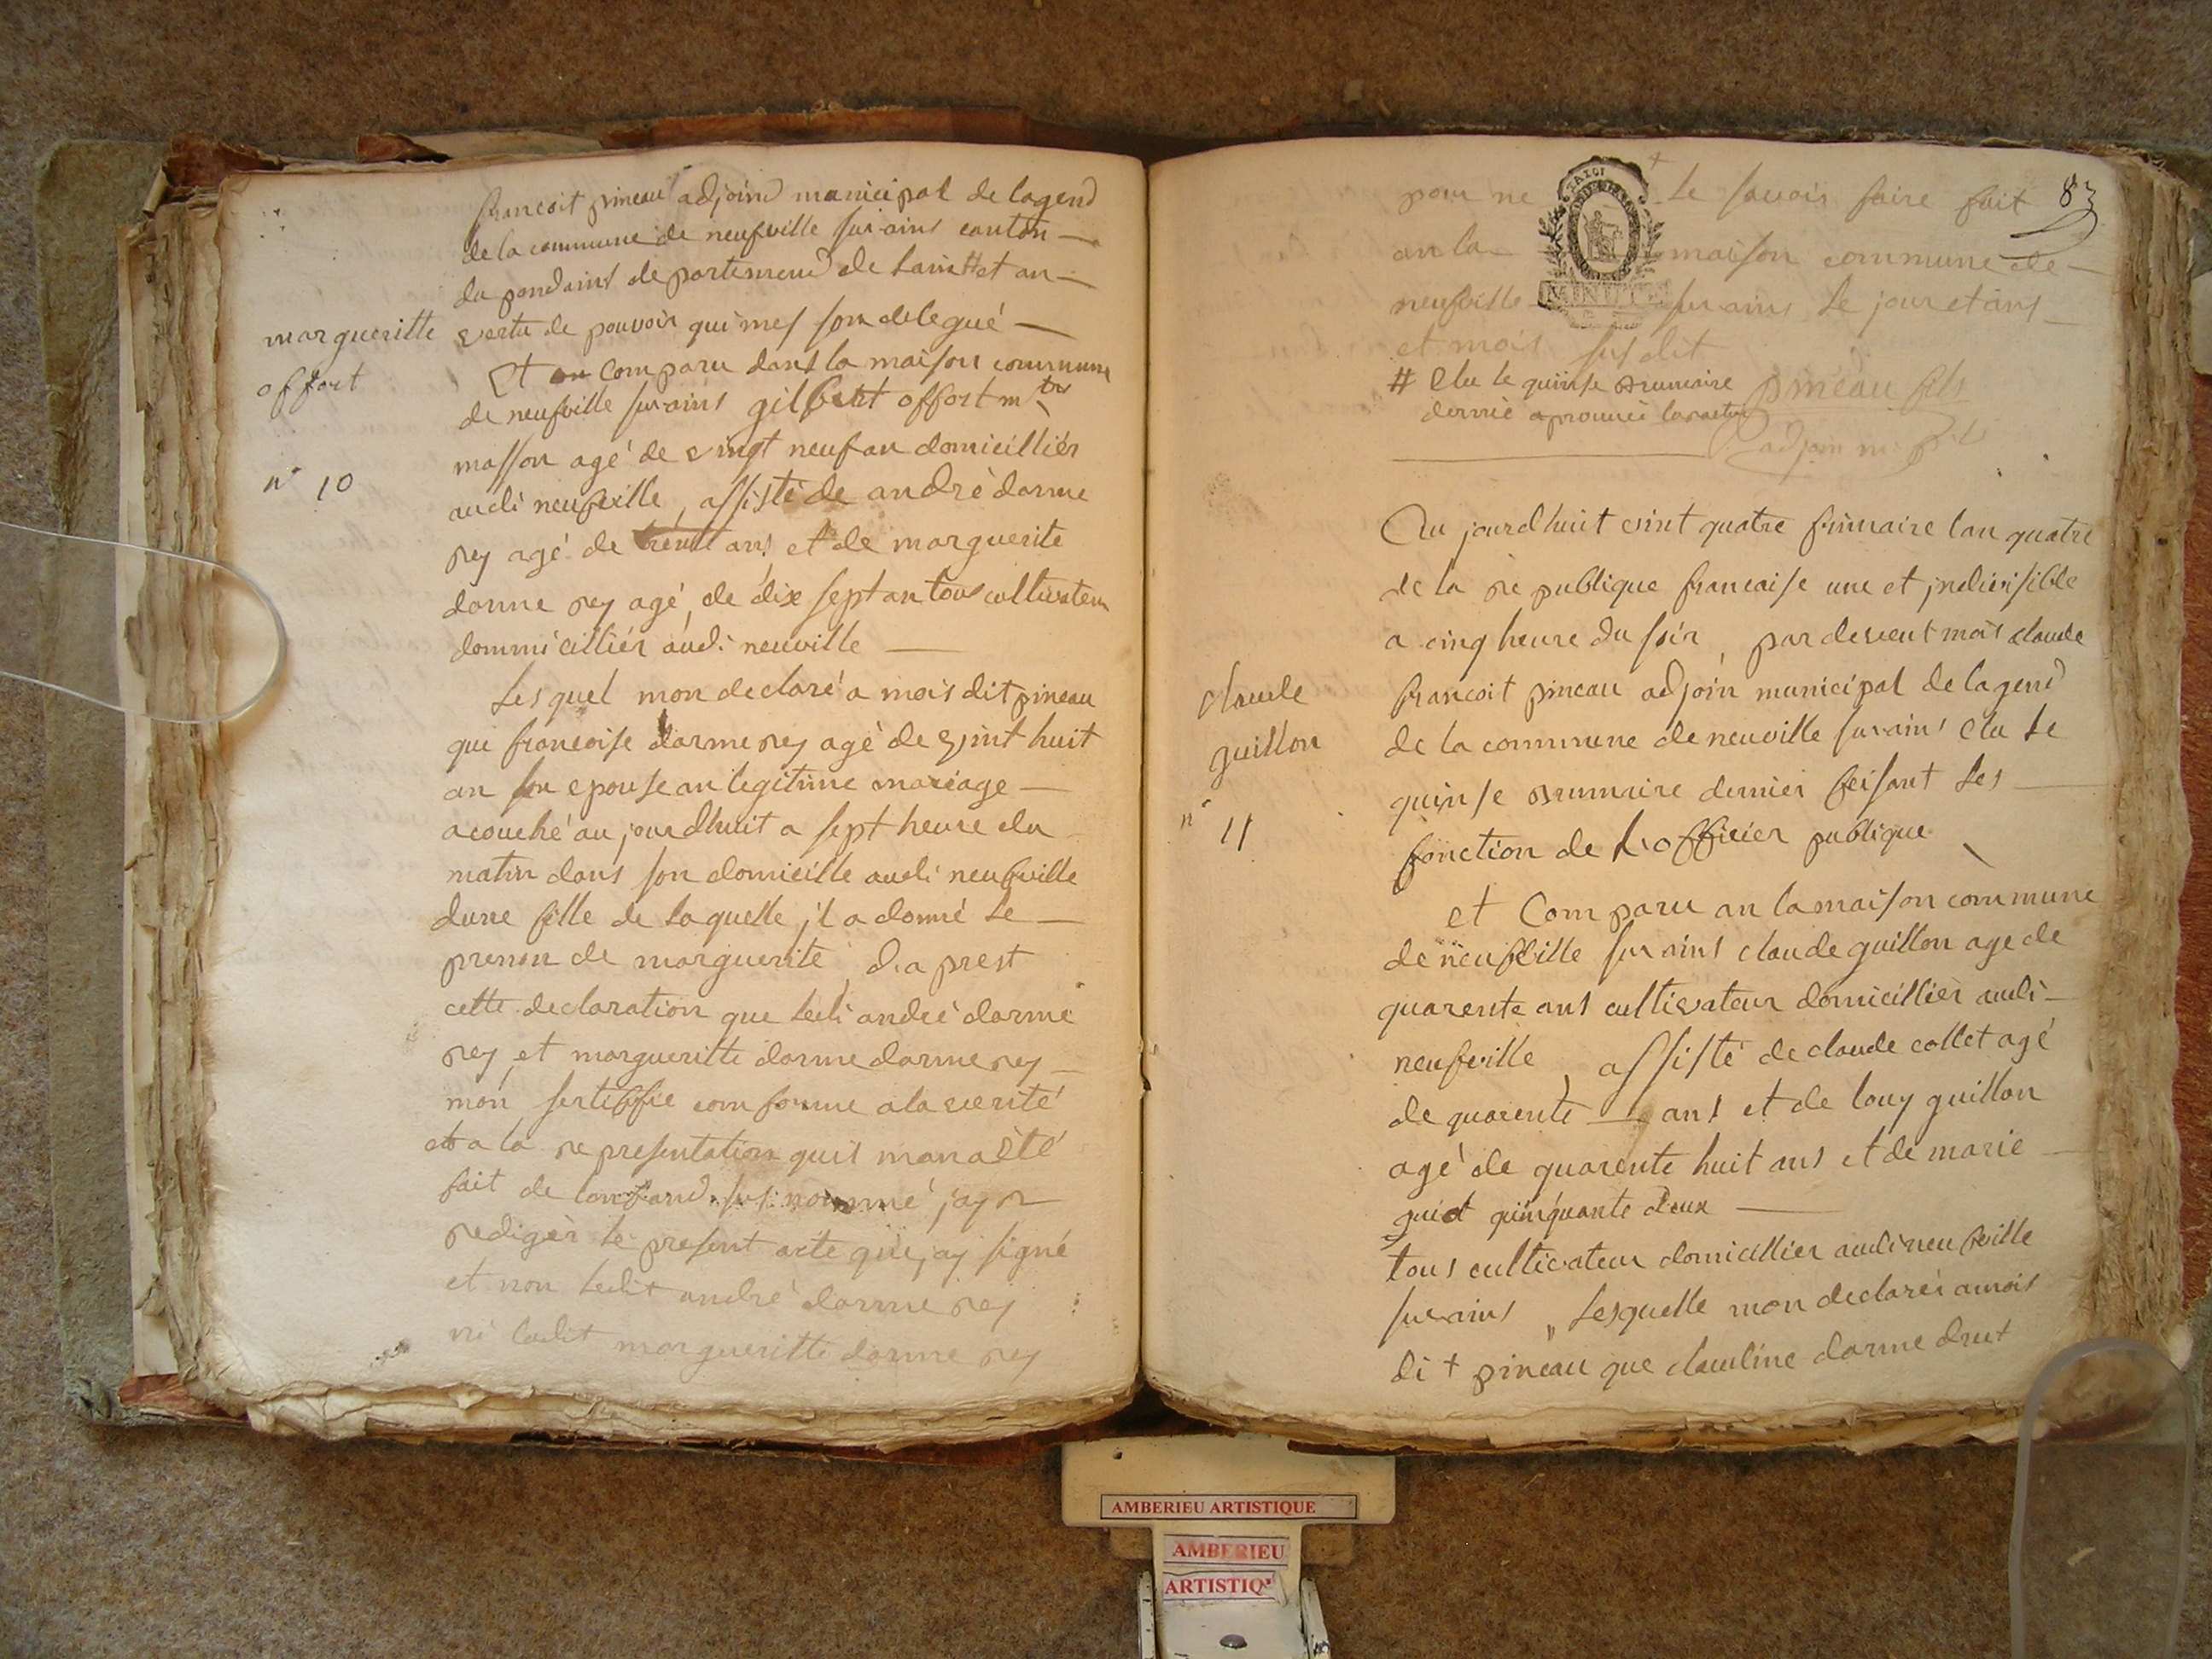 francoit pineau adjoind municipal de lagend
de la commune de neufville sur ains canton
du pondains departemend de lain # et an
vertu de pouvoir qui mes son delegué
margueritte
offort
n° 10
Et comparu dans la maison commune
de neufville sur ains gilbert offort mtre
masson agé de vingt neuf an domicilliér
audi neufville, assisté de andrè darme
rey agé de trent ans et de marguerite
darme rey agé de dix sept an tous cultivateur
dommicilliér audi neuville
Lesquel mon declaré a mois dit pineau
que francoise darme rey agè de vint huit
an son epouse an legitime mariage
acouché aujourdhuit a sept heure du
matin dans son domicille audi neufville
dune fille de laquelle jl a donné le
prenon de marguerite d.a prest
cette declaration que ledi andrè darme
rey et margueritte darme darme rey
mon sertiffie comforme a la verité
et a la representation quil man a été
fait de lanfand sus nommé j'ay r
redigèr le present acte que j'ay signé
et non ledit andrè darme rey
ni ladit margueritte darme rey
83
pour ne le savoir faire fait
an la maison commune de
MINUTE
neufville sur ains le jour et ans
et mois susdit
# Elu le quinse brumaire
dernié aprouvéi
pineau fils
adjoin m.pal
Au jourdhuit vint quatre frimaire lan quatre
de la republique francaise une et jndivisible
a cinq heure du soir, par devent mois claude
francoit pineau adjoin municipal de lagend
de la commune de neuville sur ains elu le
quinse brumaire dernier feisant les
fonction de l'officier publique
claude
guillon
n° 11
et Comparu an la maison commune
de neufville sur ains claude guillon age de
quarente ans cultivateur domicilliér audi
neufville, assisté de claude collet agé
de quarente ans et de louy guillon
agé de quarente huit ans et de marie
guiot quinquante deux
tous cultivateur domicillier audi neufville
sur ains „ Lesquelle mon declaréi a mois
dit pineau que claudine darme drut
AMBERIEU ARTISTIQUE
AMBERIEU
ARTISTIQ